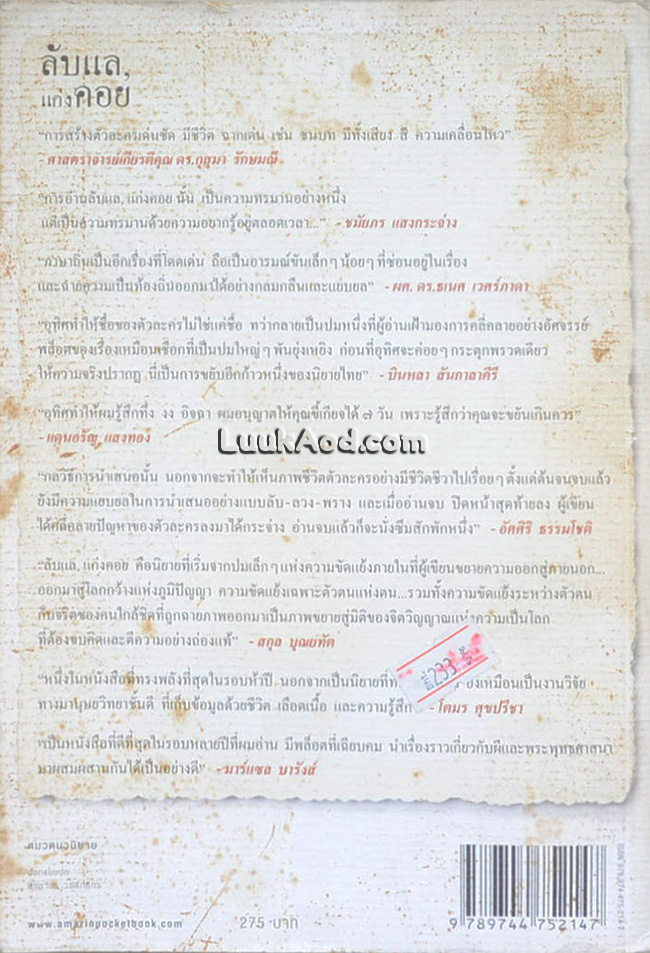 ลับแล,
แก่งคอย
“การสร้างตัวละครเด่นชัด มีชีวิต ฉากเด่น เช่น ชนบท มีทั้งเสียง สี ความเคลื่อนไหว”
- ศาสตราจารย์เกียรติคุณ ดร.กุสุมา รักษมณี
“การอ่านลับแล, แก่งคอย นั้น เป็นความทรมานอย่างหนึ่ง
แต่เป็นความทรมานด้วยความอยากรู้อยู่ตลอดเวลา...” - ชมัยภร แสงกระจ่าง
“ภาษาถิ่นเป็นอีกเรื่องที่โดดเด่น ถือเป็นอารมณ์ขันเล็กๆ น้อยๆ ที่ซ่อนอยู่ในเรื่อง
และถ่ายความเป็นท้องถิ่นออกมาได้อย่างกลมกลืนและแยบยล” - ผศ. ดร.ธเนศ เวศร์ภาดา
“อุทิศทำให้ชื่อของตัวละครไม่ใช่แค่ชื่อ ทว่ากลายเป็นปมหนึ่งที่ผู้อ่านเฝ้ามองการคลี่คลายอย่างอัศจรรย์
พล็อตของเรื่องเหมือนเชือกที่เป็นปมใหญ่ๆ พันยุ่งเหยิง ก่อนที่อุทิศจะค่อยๆ กระตุกพรวดเดียว
ให้ความจริงปรากฏ นี่เป็นการขยับอีกก้าวหนึ่งของนิยายไทย” - บินหลา สันกาลาคีรี
“อุทิศทำให้ผมรู้สึกทึ่ง งง อิจฉา ผมอนุญาตให้คุณขี้เกียจได้ ๗ วัน เพราะรู้สึกว่าคุณจะขยันเกินควร”
- แดนอรัญ แสงทอง
LuukAod.com
“กลวิธีการนำเสนอนั้น นอกจากจะทำให้เห็นภาพชีวิตตัวละครอย่างมีชีวิตชีวาไปเรื่อยๆ ตั้งแต่ต้นจนจบแล้ว
ยังมีความแยบยลในการนำเสนออย่างแบบลับ-ลวง-พราง และเมื่ออ่านจบ ปิดหน้าสุดท้ายลง ผู้เขียน
ได้คลี่คลายปัญหาของตัวละครลงมาได้กระจ่าง อ่านจบแล้วก็จะนั่งซึมสักพักหนึ่ง” - อัศศิริ ธรรมโชติ
“ลับแล, แก่งคอย คือนิยายที่เริ่มจากปมเล็กๆ แห่งความขัดแย้งภายในที่ผู้เขียนขยายความออกสู่ภายนอก...
ออกมาสู่โลกกว้างแห่งภูมิปัญญา ความขัดแย้งเฉพาะตัวตนแห่งตน...รวมทั้งความขัดแย้งระหว่างตัวตน
กับจริตของคนใกล้ชิดที่ถูกฉายภาพออกมาเป็นภาพขยายสู่มิติของจิตวิญญาณแห่งความเป็นโลก
ที่ต้องขบคิดและตีความอย่างถ่องแท้” - สกุล บุณยทัต
“หนึ่งในหนังสือที่ทรงพลังที่สุดในรอบห้าปี นอกจากเป็นนิยายที่ ยังเหมือนเป็นงานวิจัย
ทางมานุษยวิทยาชั้นดี ที่เก็บข้อมูลด้วยชีวิต เลือดเนื้อ และความรู้สึก - โตมร ศุขปรีชา
233
“เป็นหนังสือที่ดีที่สุดในรอบหลายปีที่ผมอ่าน มีพล็อตที่เฉียบคม นำเรื่องราวเกี่ยวกับผีและพระพุทธศาสนา
มาผสมผสานกันได้เป็นอย่างดี” - มาร์แซล บารังส์
หมวดนวนิยาย
www.amarinpocketbook.com
275 บาท
9 789744 752147